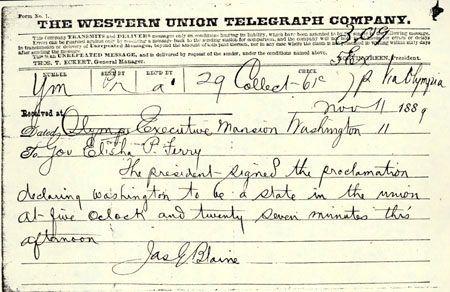 Form No. 1.
THE WESTERN UNION TELEGRAPH COMPANY.
This Company TRANSMITS and DELIVERS messages only on conditions limiting its liability, which have been assented to by the sender of the following message.
Errors can be guarded against only by repeating a message back to the sending station for comparison, and the company will not hold itself liable for errors or delays
in transmission or delivery of Unrepeated Messages, beyond the amount of tolls paid thereon, nor in any case where the claim is not presented in writing within sixty days
after sending the message.
This is an UNREPEATED MESSAGE, and is delivered by request of the sender, under the conditions named above.
THOS. T. ECKERT, General Manager. NORVIN GREEN, President.
NUMBER SENT BY REC'D BY CHECK
29 Collect 61c Via Olympia
Received at Nov 11 1889
Dated, Olympia Executive Mansion Washington 11
To Gov Elisha P. Ferry
The president signed the proclamation
declaring Washington to be a state in the union
at five oclock and twenty seven minutes this
afternoon
Jas G Blaine